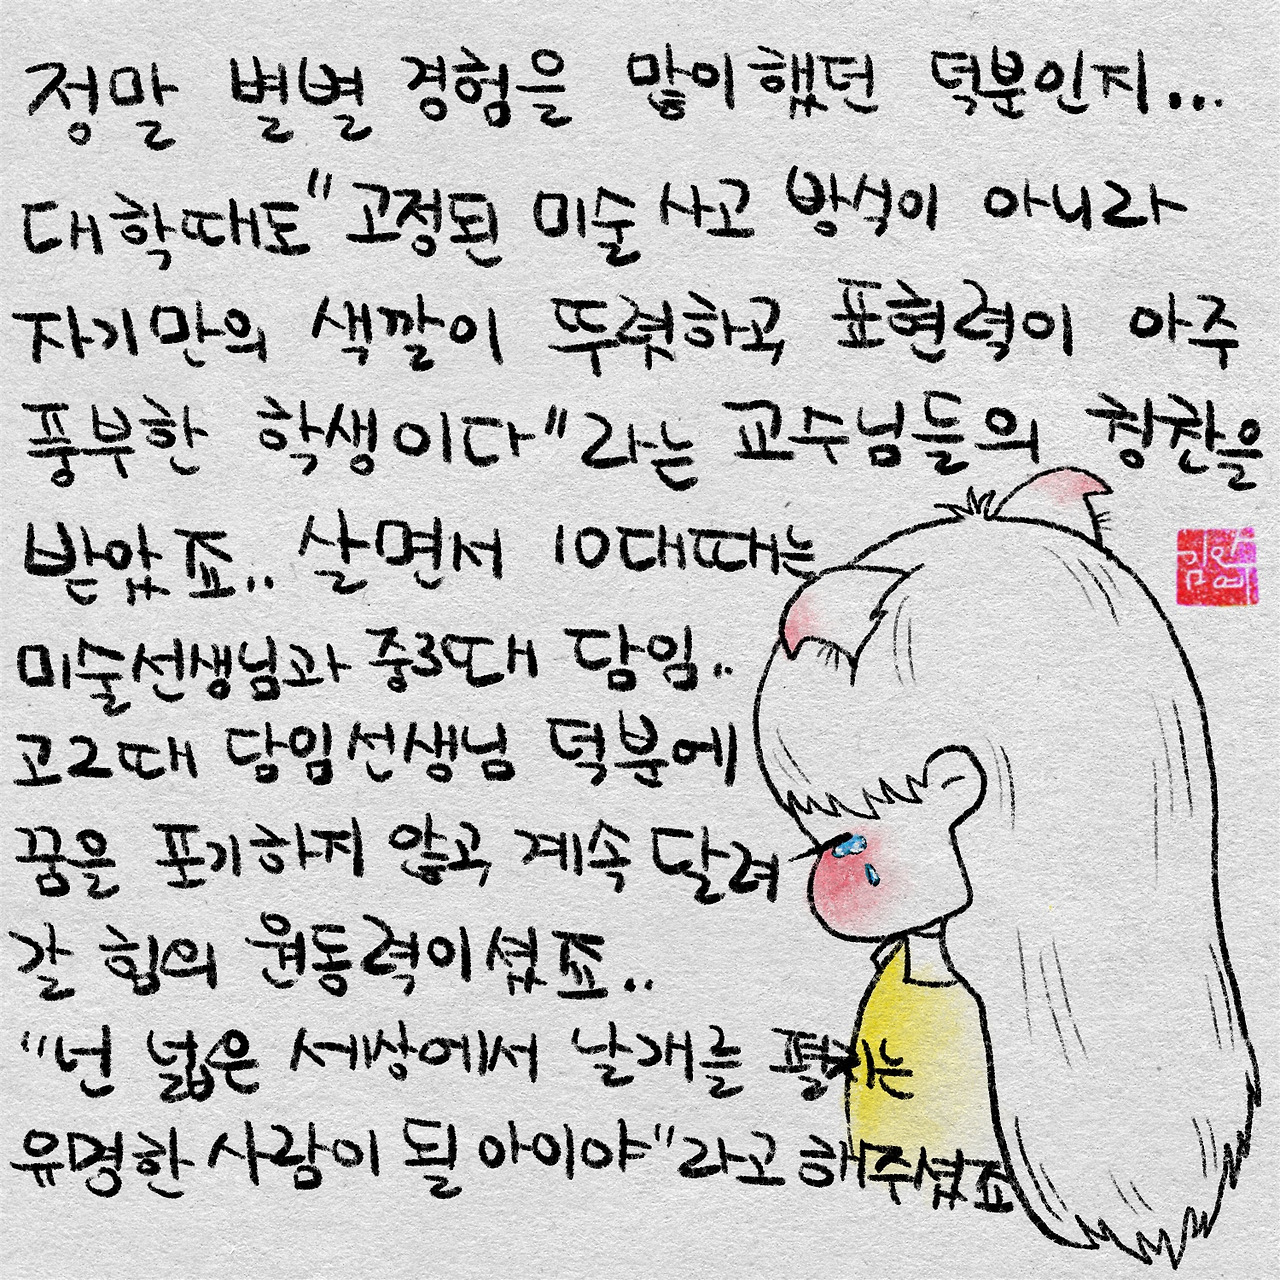 정말 별별 경험을 많이했던 덕분인지...
대학때도 "고정된 미술사고 방식이 아니라
자기만의 색깔이 뚜렷하고 표현력이 아주
풍부한 학생이다"라는 교수님들의 칭찬을
받았죠.. 살면서 10대때는
미술선생님과 중3때 담임..
고2때 담임선생님 덕분에
꿈을 포기하지 않고 계속 달려
갈 힘의 원동력이셨죠..
"넌 넓은 세상에서 날개를
유명한 사람이 될 아이야"라고 해주셨죠